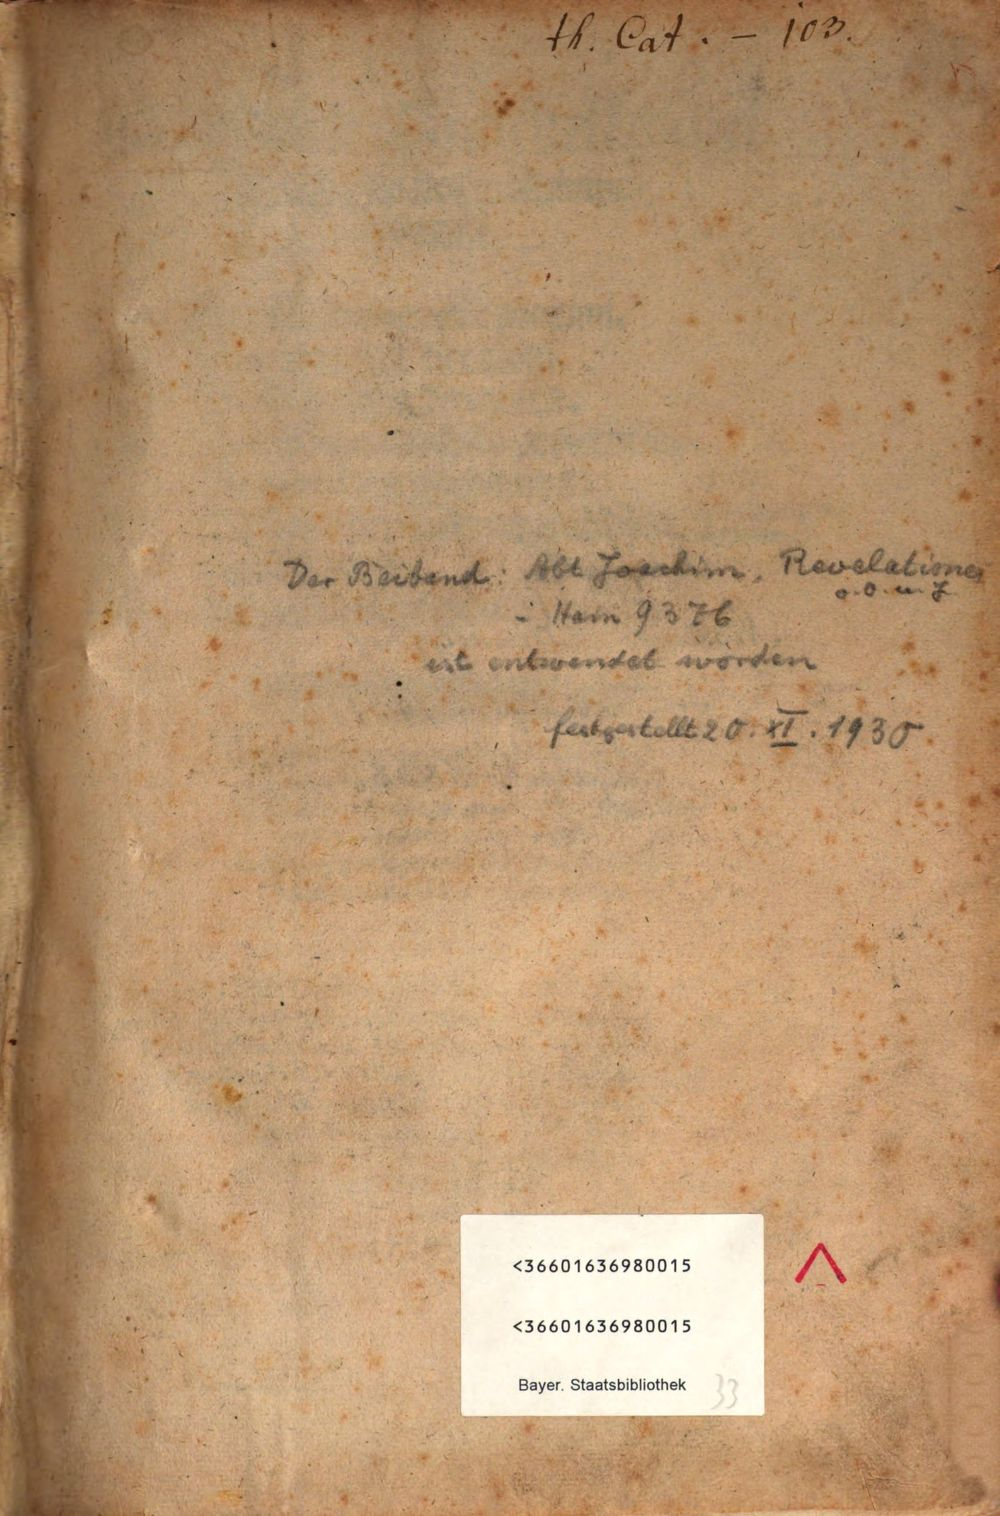 th. Cat. – 103.
Der Beiband: Abt Joachim, Revelationes
o. O. u. J
- Hain 9376
ist entwendet worden
festgestellt 20. XI. 1930
<36601636980015
<36601636980015
Bayer. Staatsbibliothek
33